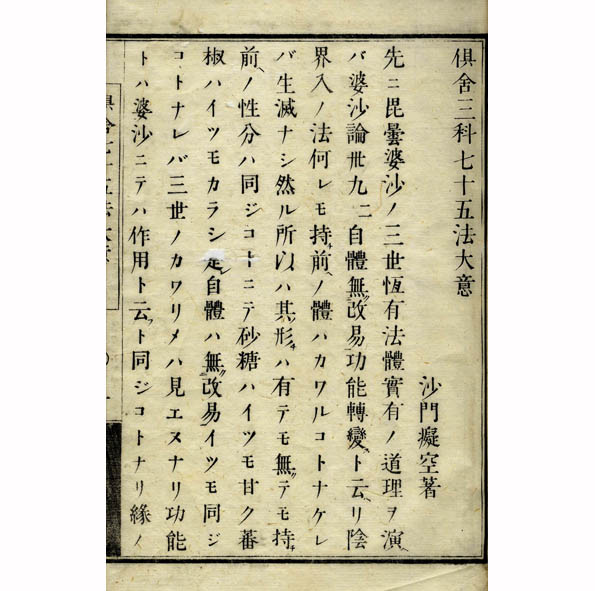 俱舍三科七十五法大意
沙門癡空著
先ニ毘曇婆沙ノ三世恆有法體實有ノ道理ヲ演
バ婆沙論卅九ニ自體無改易功能轉變ト云リ陰
界入ノ法何レモ持前ノ體ハカワルコトナケレ
バ生滅ナシ然ル所以ハ其形ハ有テモ無テモ持
前ノ性分ハ同ジコトニテ砂糖ハイツモ甘ク蕃
椒ハイツモカラシ是自體ハ無改易イツモ同ジ
コトナレバ三世ノカワリメハ見エヌナリ功能
トハ婆沙ニテハ作用ト云ト同ジコトナリ緣ノ